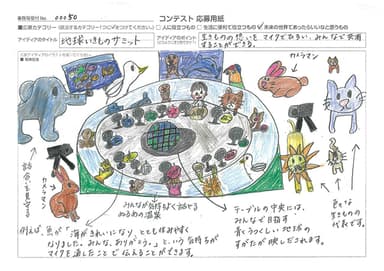 事務局受付No. 00050
コンテスト 応募用紙
■応募カテゴリー
□人に役立つもの
□生活に便利で役立つもの
未来の世界であったらいいなと思うもの
アイディアのタイトル
地球いきものサミット
アイディアのポイント
生きものの想いをマイクでたちい、みんなで共有
することができる。
カメラマン
話合いを見守る
カメラマン
みんなが気持ちよく話せる
ぬるめの温泉
テーブルの中央には、
みんなで目指す
青くうつくしい地球の
すがたが映しだされます。
色々な
生きものの
代表です。
例えば、魚が「海がきれいになり、とても住みやすく
なりました。みんな、ありがとう。」という気持ちが
マイクを通したことでつたえることができます。